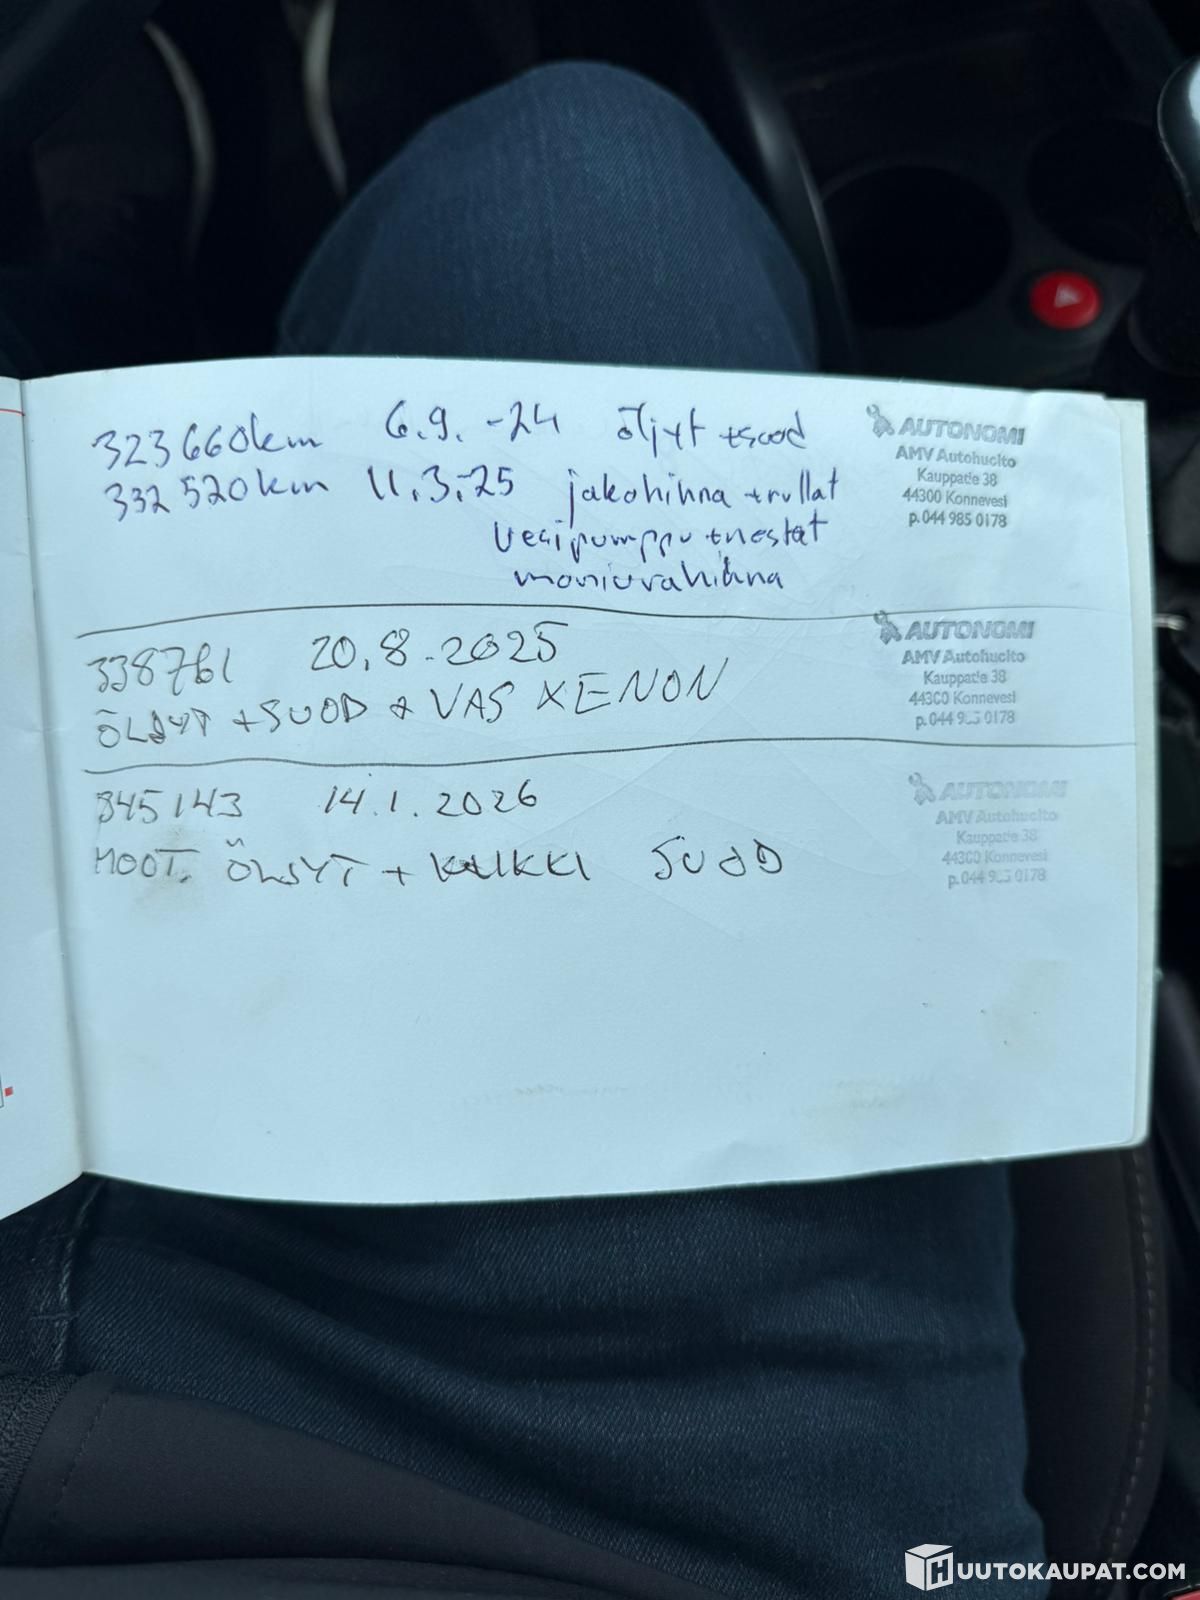 323660km 6.9.-24 öljyt +suod
332520km 11.3.-25 jakohihna +rullat
vesipumppu +nestat
moniurahihna
AUTONOMI
AMV Autohuolto
Kauppatie 38
44300 Konnevesi
p.044 985 0178
338761 20.8.2025
ÖLJYT + SUOD + VAS XENON
AUTONOMI
AMV Autohuolto
Kauppatie 38
44300 Konnevesi
p.044 985 0178
345143 14.1.2026
MOOT. ÖLJYT + KAIKKI SUOD
AUTONOMI
AMV Autohuolto
Kauppatie 38
44300 Konnevesi
p.044 985 0178
HUUTOKAUPAT.COM